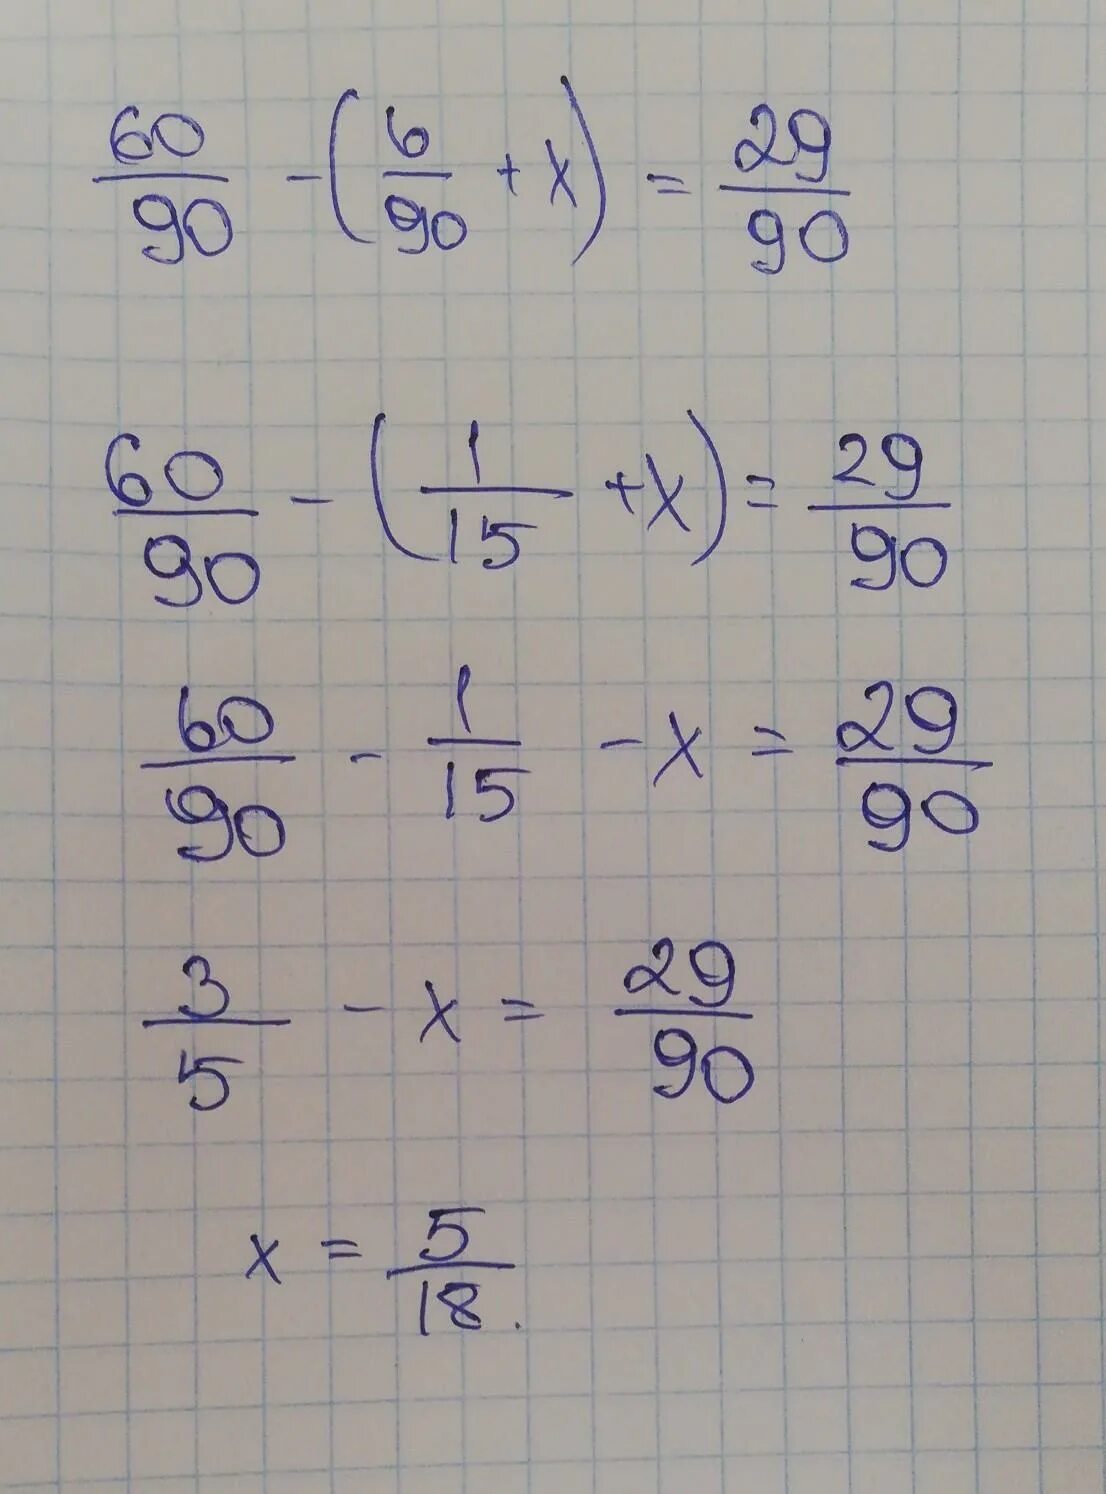 60/90 - (6/90 + x) = 29/90
60/90 - (1/15 + x) = 29/90
60/90 - 1/15 - x = 29/90
3/5 - x = 29/90
x = 5/18.